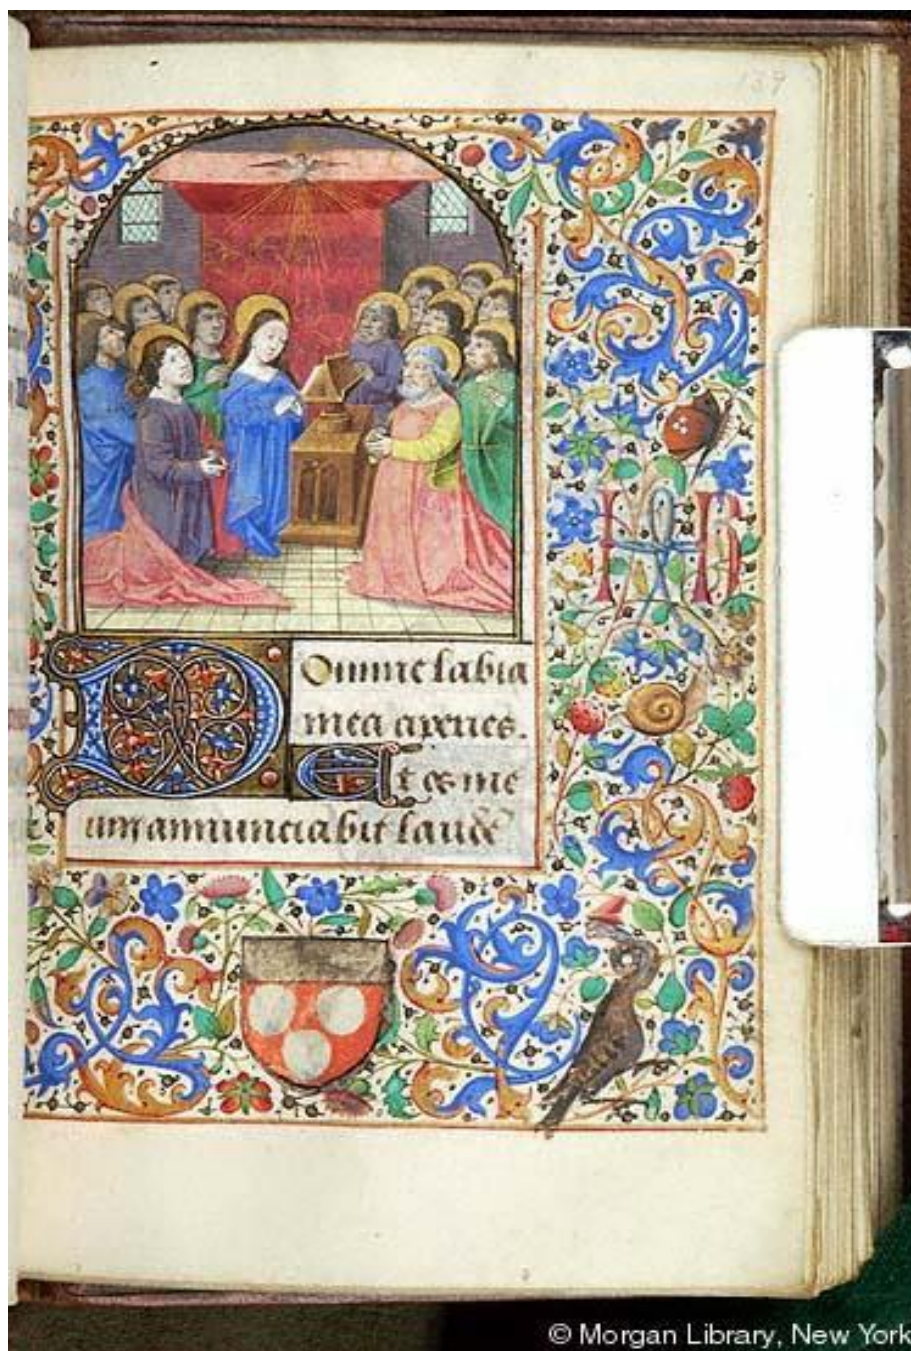 139
Domine labia
mea aperies.
Et os me
um annunciabit laudē
© Morgan Library, New York